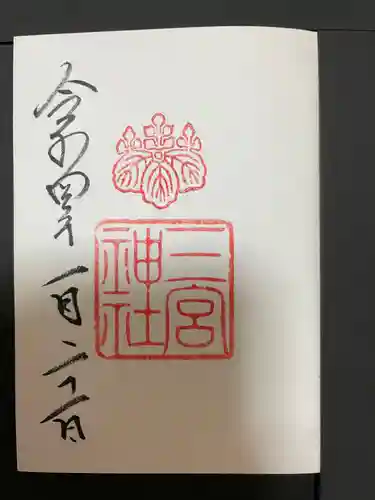 二宮
神社
令和四年一月二十一日